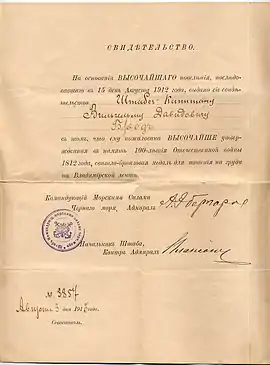 СВИДѢТЕЛЬСТВО.
На основаніи ВЫСОЧАЙШАГО повелѣнія, послѣдо-
вавшаго въ 15 день Августа 1912 года, выдано сіе свидѣ-
тельство Штабсъ-Капитану
Вильгельму Давидовичу
въ томъ, что ему пожалована ВЫСОЧАЙШЕ учреж-
денная въ память 100-лѣтія Отечественной войны
1812 года, свѣтло-бронзовая медаль для ношенія на груди
на Владимірской лентѣ.
Командующій Морскими Силами
Чернаго моря, Адмиралъ
Начальникъ Штаба,
Контръ Адмиралъ
№ 3857
Августа 3 дня 191 года.
Севастополь.